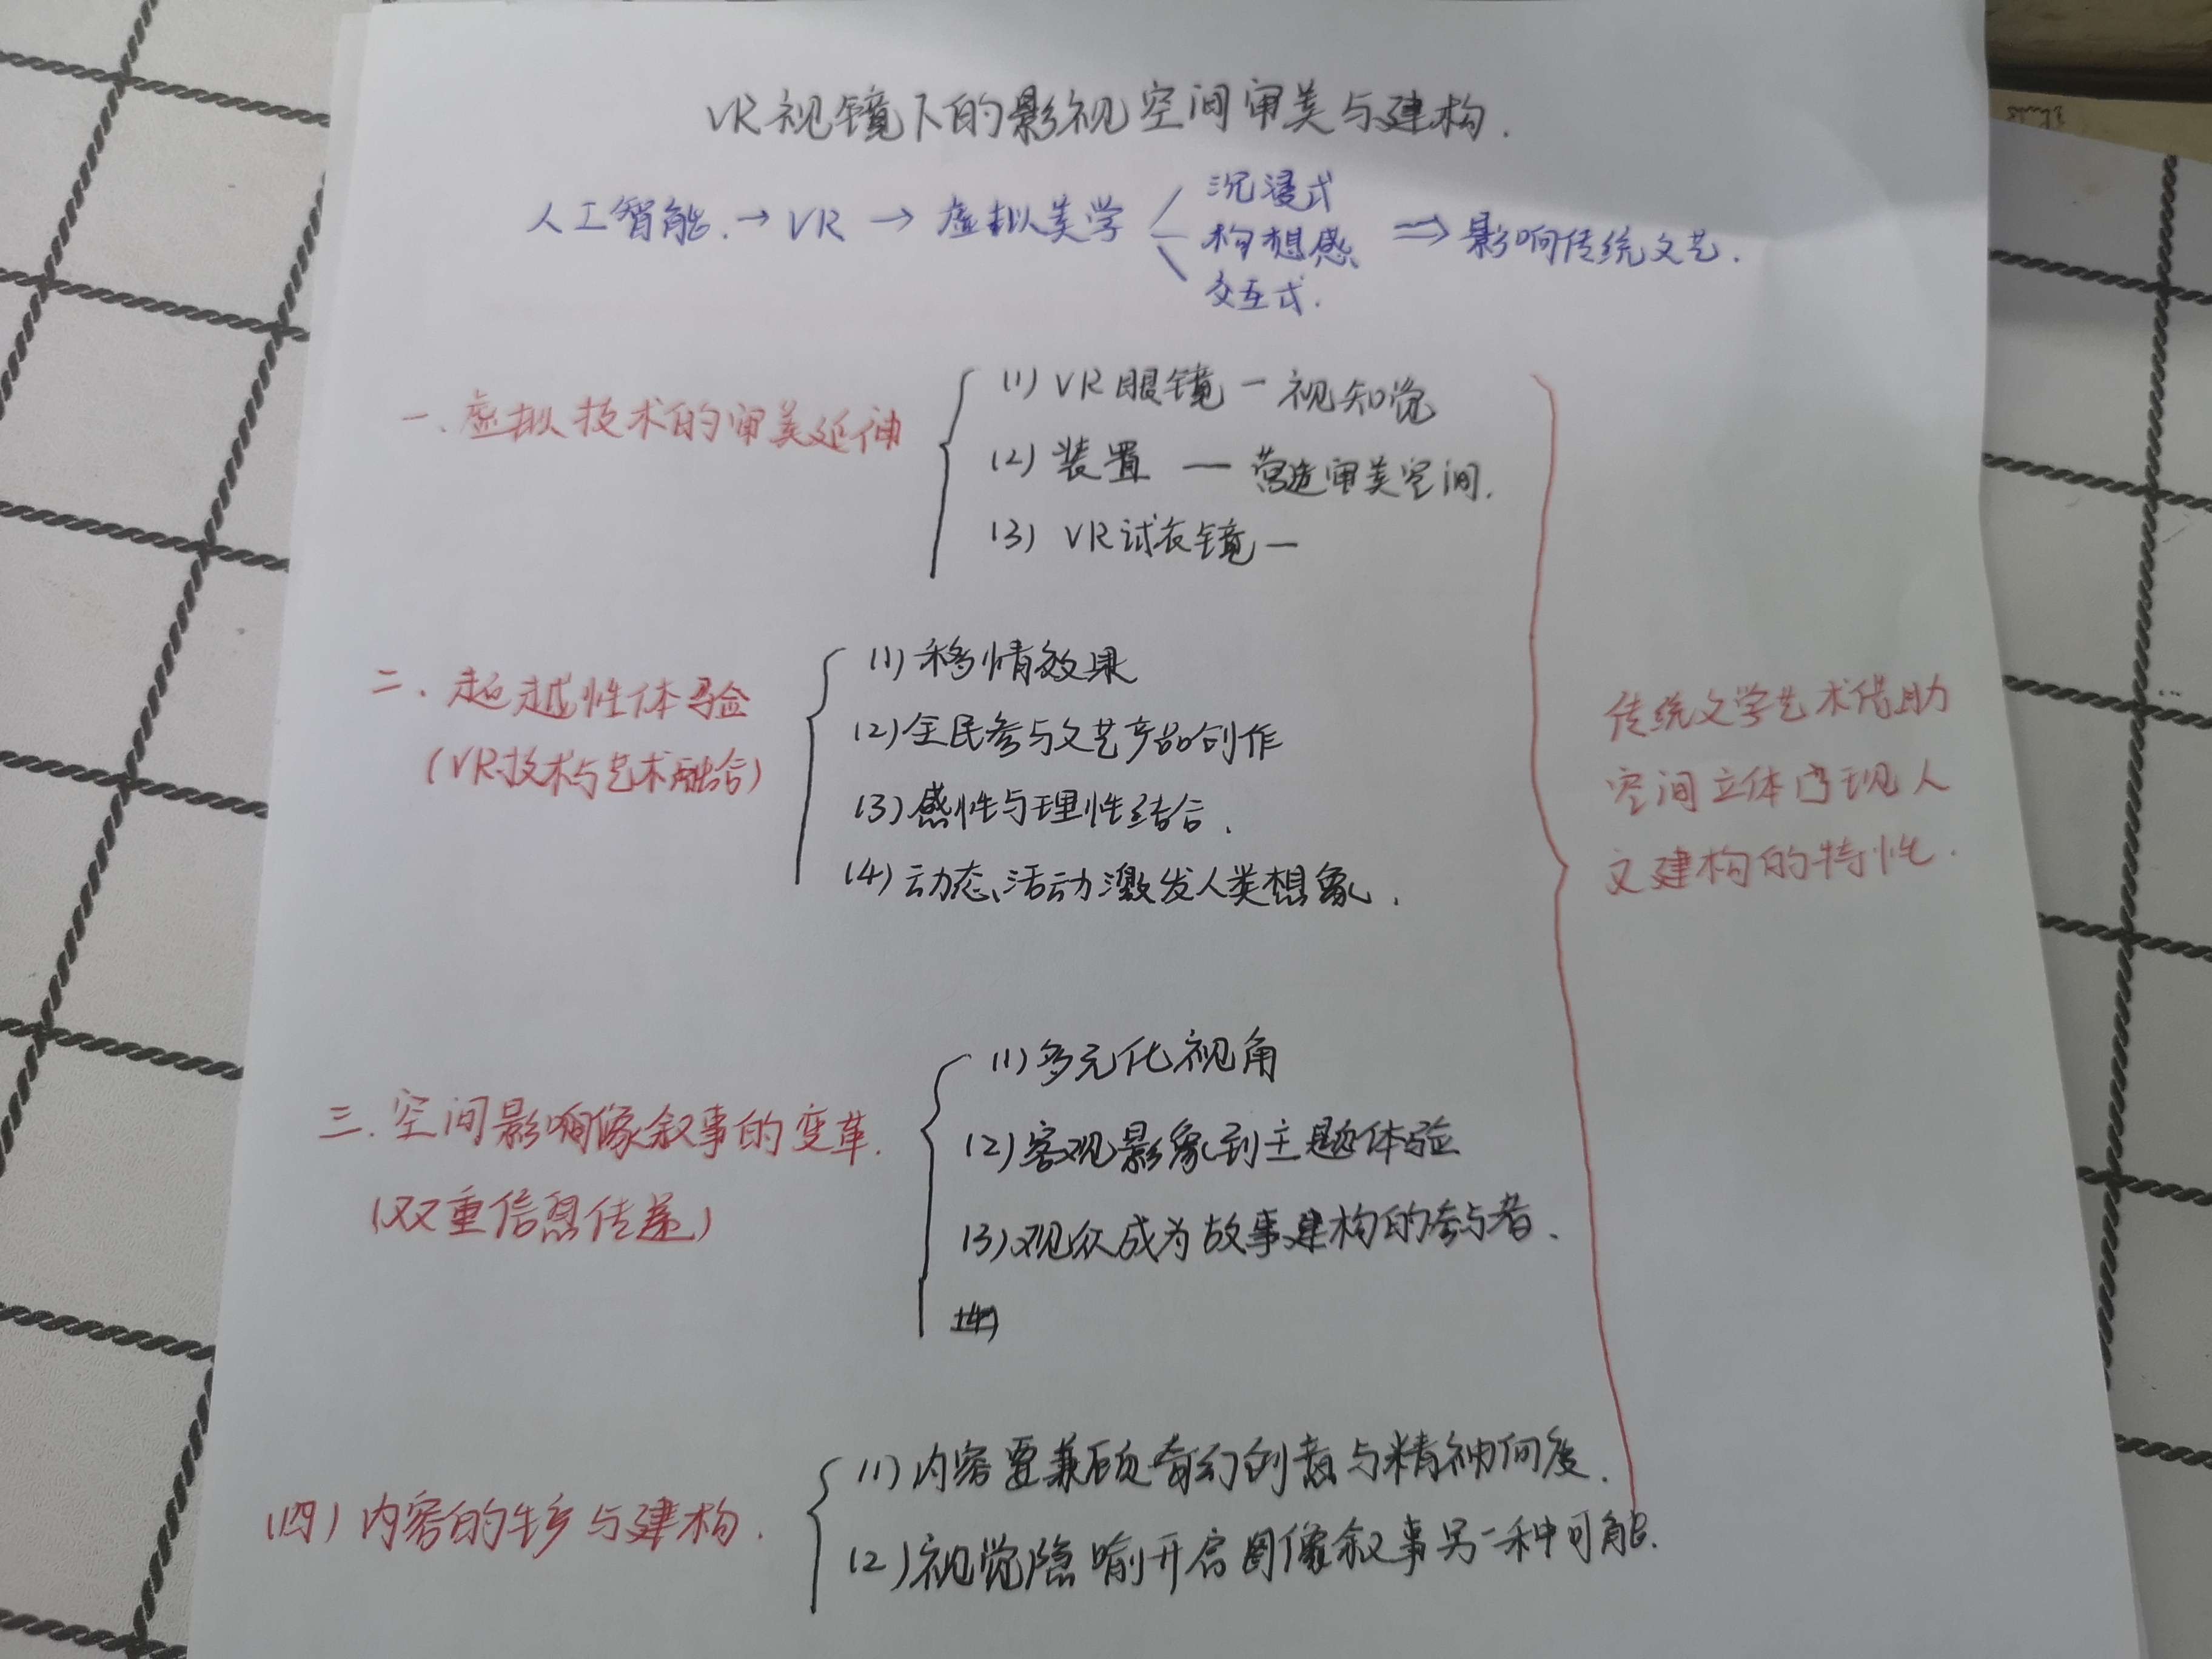 VR视镜下的影视空间审美与建构.
人工智能.→VR→虚拟美学
沉浸式
构想感
交互式.
⇒影响传统文艺.
一、虚拟技术的审美延伸
(1) VR眼镜—视知觉
(2) 装置 — 营造审美空间.
(3) VR试衣镜—
二、超越性体验
(VR技术与艺术融合)
(1)移情效果
(2)全民参与文艺产品创作
(3)感性与理性结合.
(4)动态、活动激发人类想象.
三.空间影响像叙事的变革.
(双重信息传递)
(1)多元化视角
(2)客观影象到主题体验
(3)观众成为故事建构的参与者.
(四)内容的生产与建构.
(1)内容要兼顾奇幻创意与精神向度.
(2)视觉隐喻开启图像叙事另一种可能.
传统文学艺术借助
空间立体凸现人
文建构的特性.